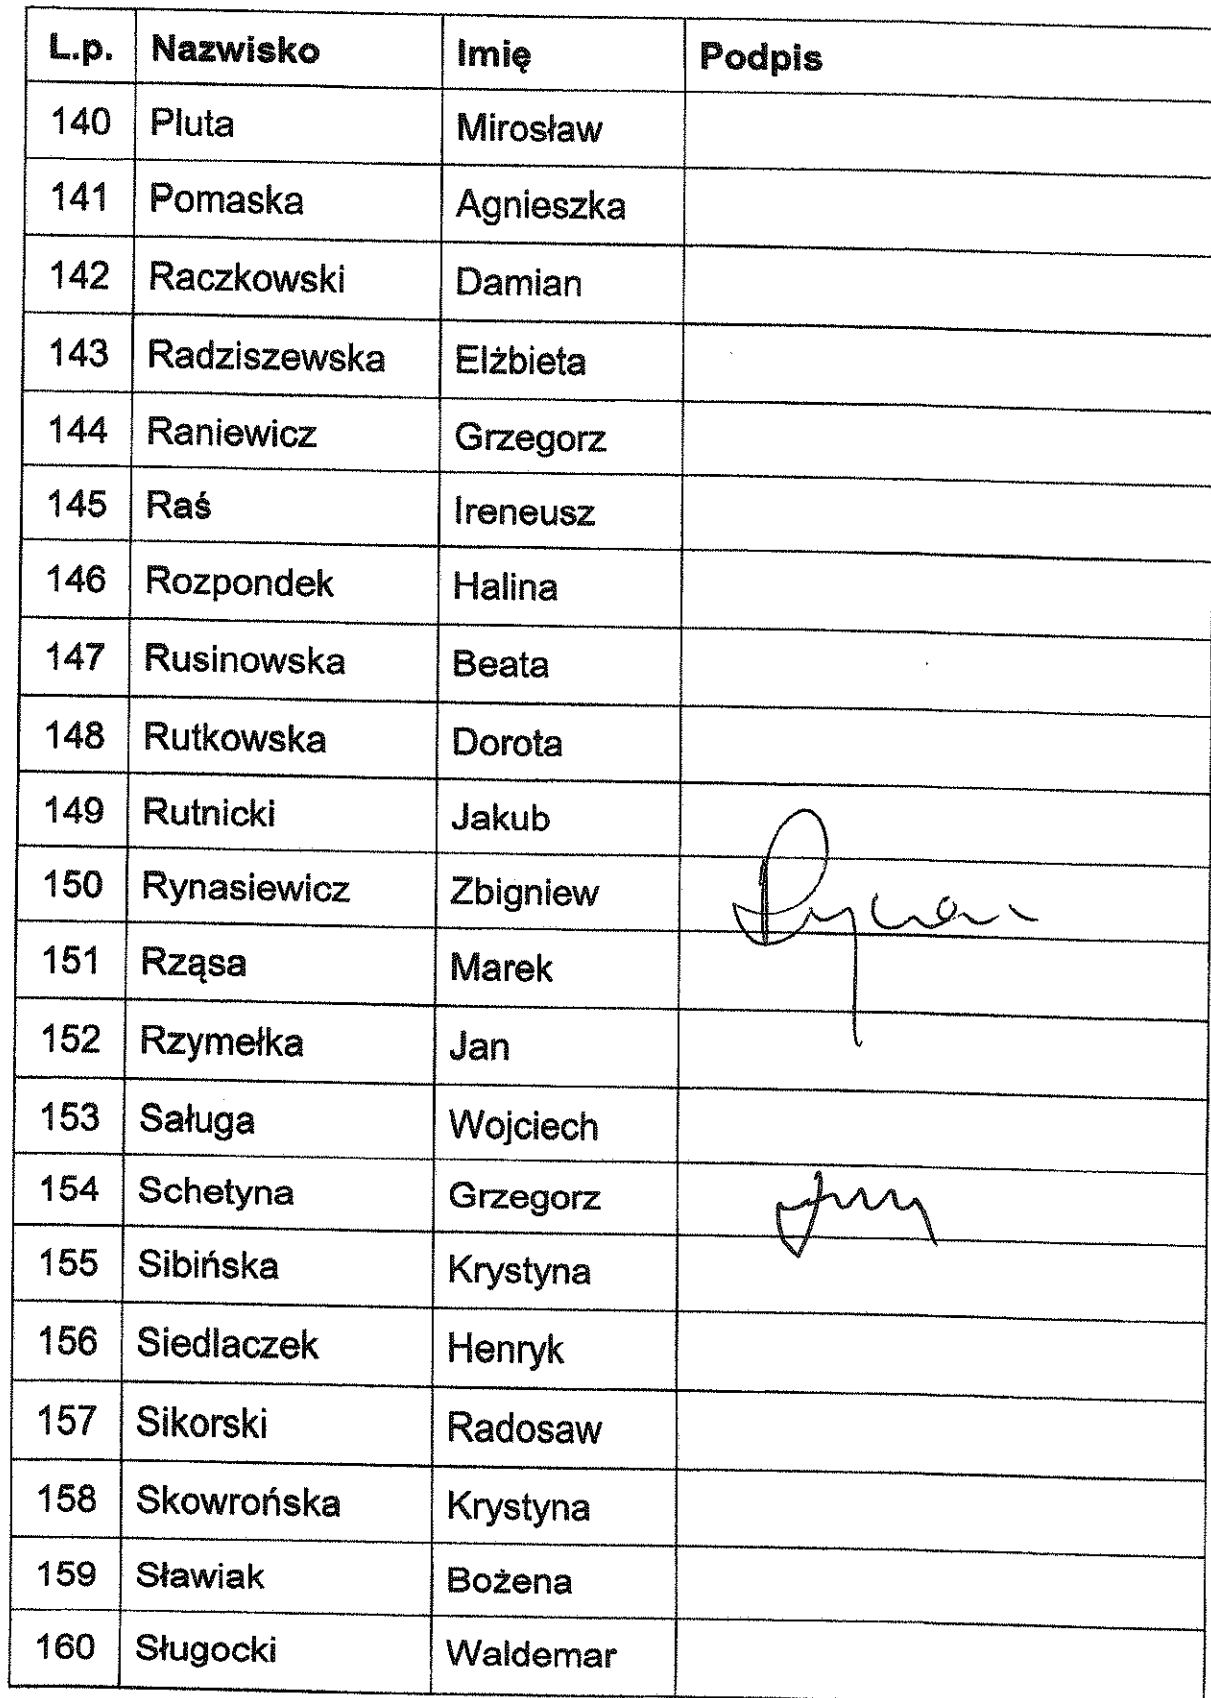 L.p. Nazwisko Imię Podpis
140 Pluta Mirosław
141 Pomaska Agnieszka
142 Raczkowski Damian
143 Radziszewska Elżbieta
144 Raniewicz Grzegorz
145 Raś Ireneusz
146 Rozpondek Halina
147 Rusinowska Beata
148 Rutkowska Dorota
149 Rutnicki Jakub
150 Rynasiewicz Zbigniew
151 Rząsa Marek
152 Rzymełka Jan
153 Saługa Wojciech
154 Schetyna Grzegorz
155 Sibińska Krystyna
156 Siedlaczek Henryk
157 Sikorski Radosaw
158 Skowrońska Krystyna
159 Sławiak Bożena
160 Sługocki Waldemar